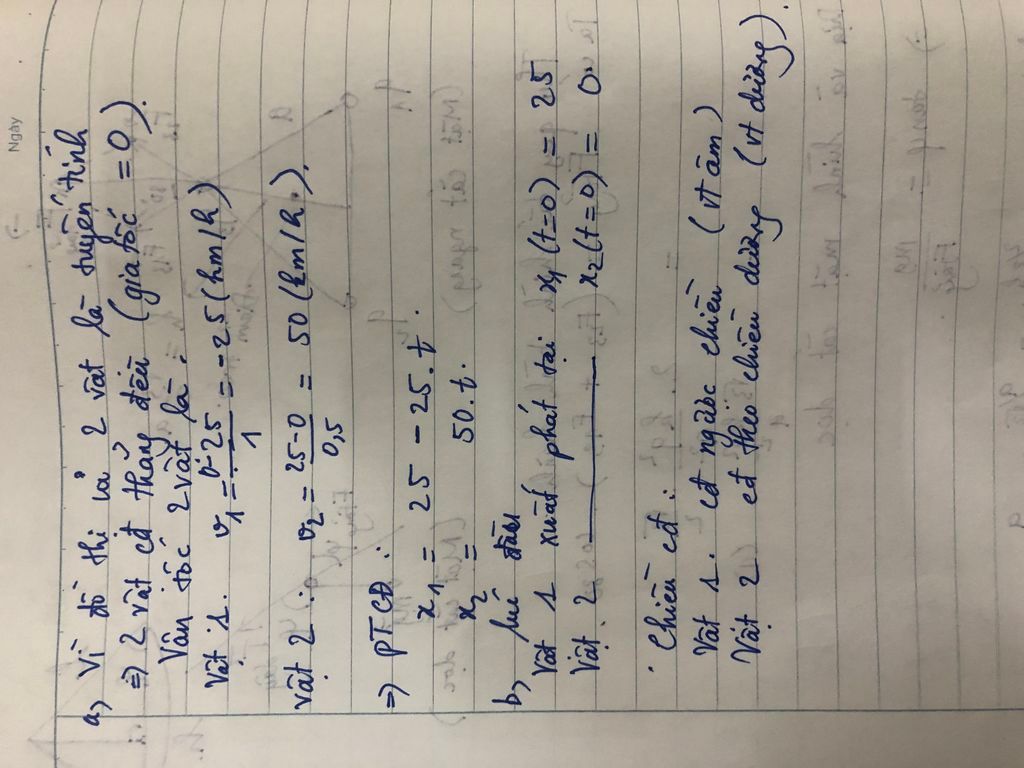 Ngày
a, Vì đồ thị của 2 vật là tuyến tính
=> 2 vật cđ thẳng đều (gia tốc = 0).
Vận tốc 2 vật là:
Vật 1. v₁ = (0-25)/1 = -25 (km/h)
vật 2: v₂ = (25-0)/0,5 = 50 (km/h).
=> PTCĐ:
x₁ = 25 - 25.t.
x₂ = 50.t.
b, lúc đầu
Vật 1 xuất phát tại x₁(t=0) = 25
Vật 2 ——— x₂(t=0) = 0.
. Chiều cđ:
Vật 1. cđ ngược chiều (vt âm)
Vật 2 cđ theo chiều dương (vt dương).